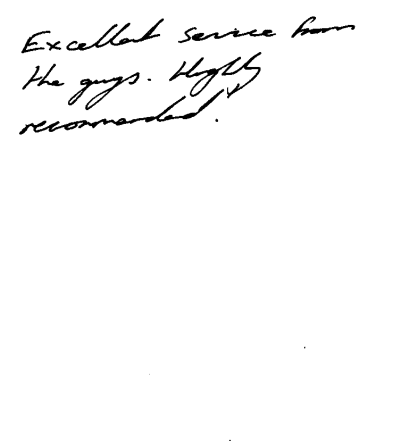 Excellent service from
the guys. Highly
recommended.